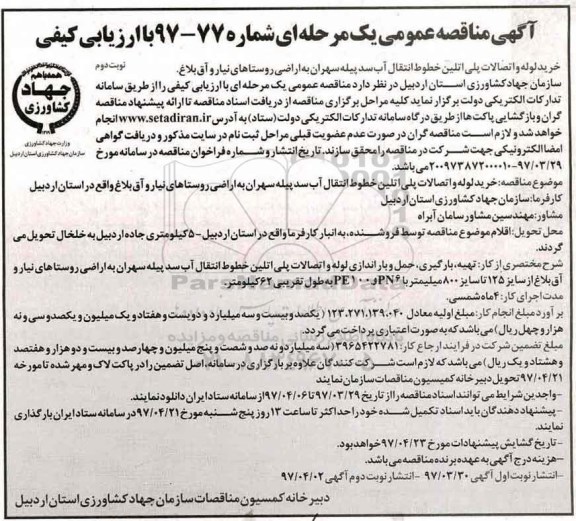 آگهی مناقصه عمومی یک مرحله ای شماره ۷۷-۹۷ با ارزیابی کیفی
نوبت دوم
همه با هم
جهاد
کشاورزی
وزارت جهاد کشاورزی
سازمان جهاد کشاورزی استان اردبیل
خرید لوله و اتصالات پلی اتلین خطوط انتقال آب سد پیله سهران به اراضی روستاهای نیار و آق بلاغ.
سازمان جهاد کشاورزی استان اردبیل در نظر دارد مناقصه عمومی یک مرحله ای با ارزیابی کیفی را از طریق سامانه
تدارکات الکتریکی دولت برگزار نماید کلیه مراحل برگزاری مناقصه از دریافت اسناد مناقصه تا ارائه پیشنهاد مناقصه
گران و بازگشایی پاکت ها از طریق درگاه سامانه تدارکات الکتریکی دولت (ستاد) به آدرس www.setadiran.ir انجام
خواهد شد و لازم است مناقصه گران در صورت عدم عضویت قبلی مراحل ثبت نام در سایت مذکور و دریافت گواهی
امضا الکترونیکی جهت شرکت در مناقصه را محقق سازند. تاریخ انتشار و شماره فراخوان مناقصه در سامانه مورخ
۹۷/۰۳/۲۹-۲۰۰۹۷۳۸۷۲۰۰۰۰۱۰ می باشد.
موضوع مناقصه: خرید لوله و اتصالات پلی اتلین خطوط انتقال آب سد پیله سهران به اراضی روستاهای نیار و آق بلاغ واقع در استان اردبیل
کارفرما: سازمان جهاد کشاورزی استان اردبیل
مشاور: مهندسین مشاور سامان آبراه
محل تحویل: اقلام موضوع مناقصه توسط فروشنده، به انبار کارفرما واقع در استان اردبیل-۵ کیلومتری جاده اردبیل به خلخال تحویل می
گردند.
شرح مختصری از کار: تهیه، بارگیری، حمل و باراندازی لوله و اتصالات پلی اتلین خطوط انتقال آب سد پیله سهران به اراضی روستاهای نیار و
آق بلاغ از سایز ۱۲۵ تا سایز ۸۰۰ میلیمتر با PN۶ و PE۱۰۰ به طول تقریبی ۶۲ کیلومتر
مدت اجرای کار: ۴ ماه شمسی.
برآورد مبلغ انجام کار: مبلغ اولیه معادل ۱۲۳.۲۷۱.۱۳۹.۰۴۰ ( یکصد و بیست و سه میلیارد و دویست و هفتاد و یک میلیون و یکصد و سی و نه
هزار و چهل ریال) می باشد که به صورت اعتباری پرداخت می گردد.
مبلغ تضمین شرکت در فرایند ارجاع کار: (۳۹۶۵۴۲۲۷۸۱ (سه میلیارد و نه صد و شصت و پنج میلیون و چهارصد و بیست و دو هزار و هفتصد
و هشتاد و یک ریال) می باشد که لازم است شرکت کنندگان علاوه بر بارگزاری در سامانه، اصل تضمین را در پاکت لاک و مهر شده تا مورخه
۹۷/۰۴/۲۱ تحویل دبیرخانه کمیسیون مناقصات سازمان نمایند
-واجدین شرایط می توانند اسناد مناقصه را از تاریخ ۹۷/۰۳/۲۹ تا ۹۷/۰۴/۰۶ از سامانه ستاد ایران دانلود نمایند.
-پیشنهاد دهندگان باید اسناد تکمیل شده خود را حداکثر تا ساعت ۱۳ روز پنج شنبه مورخ ۹۷/۰۴/۲۱ در سامانه ستاد ایران بارگذاری
نمایند.
-تاریخ گشایش پیشنهادات مورخ ۹۷/۰۴/۲۳ خواهد بود.
-هزینه درج آگهی به عهده برنده مناقصه می باشد.
-انتشار نوبت اول آگهی ۹۷/۰۳/۳۰ -انتشار نوبت دوم آگهی ۹۷/۰۴/۰۲
دبیرخانه کمسیون مناقصات سازمان جهاد کشاورزی استان اردبیل